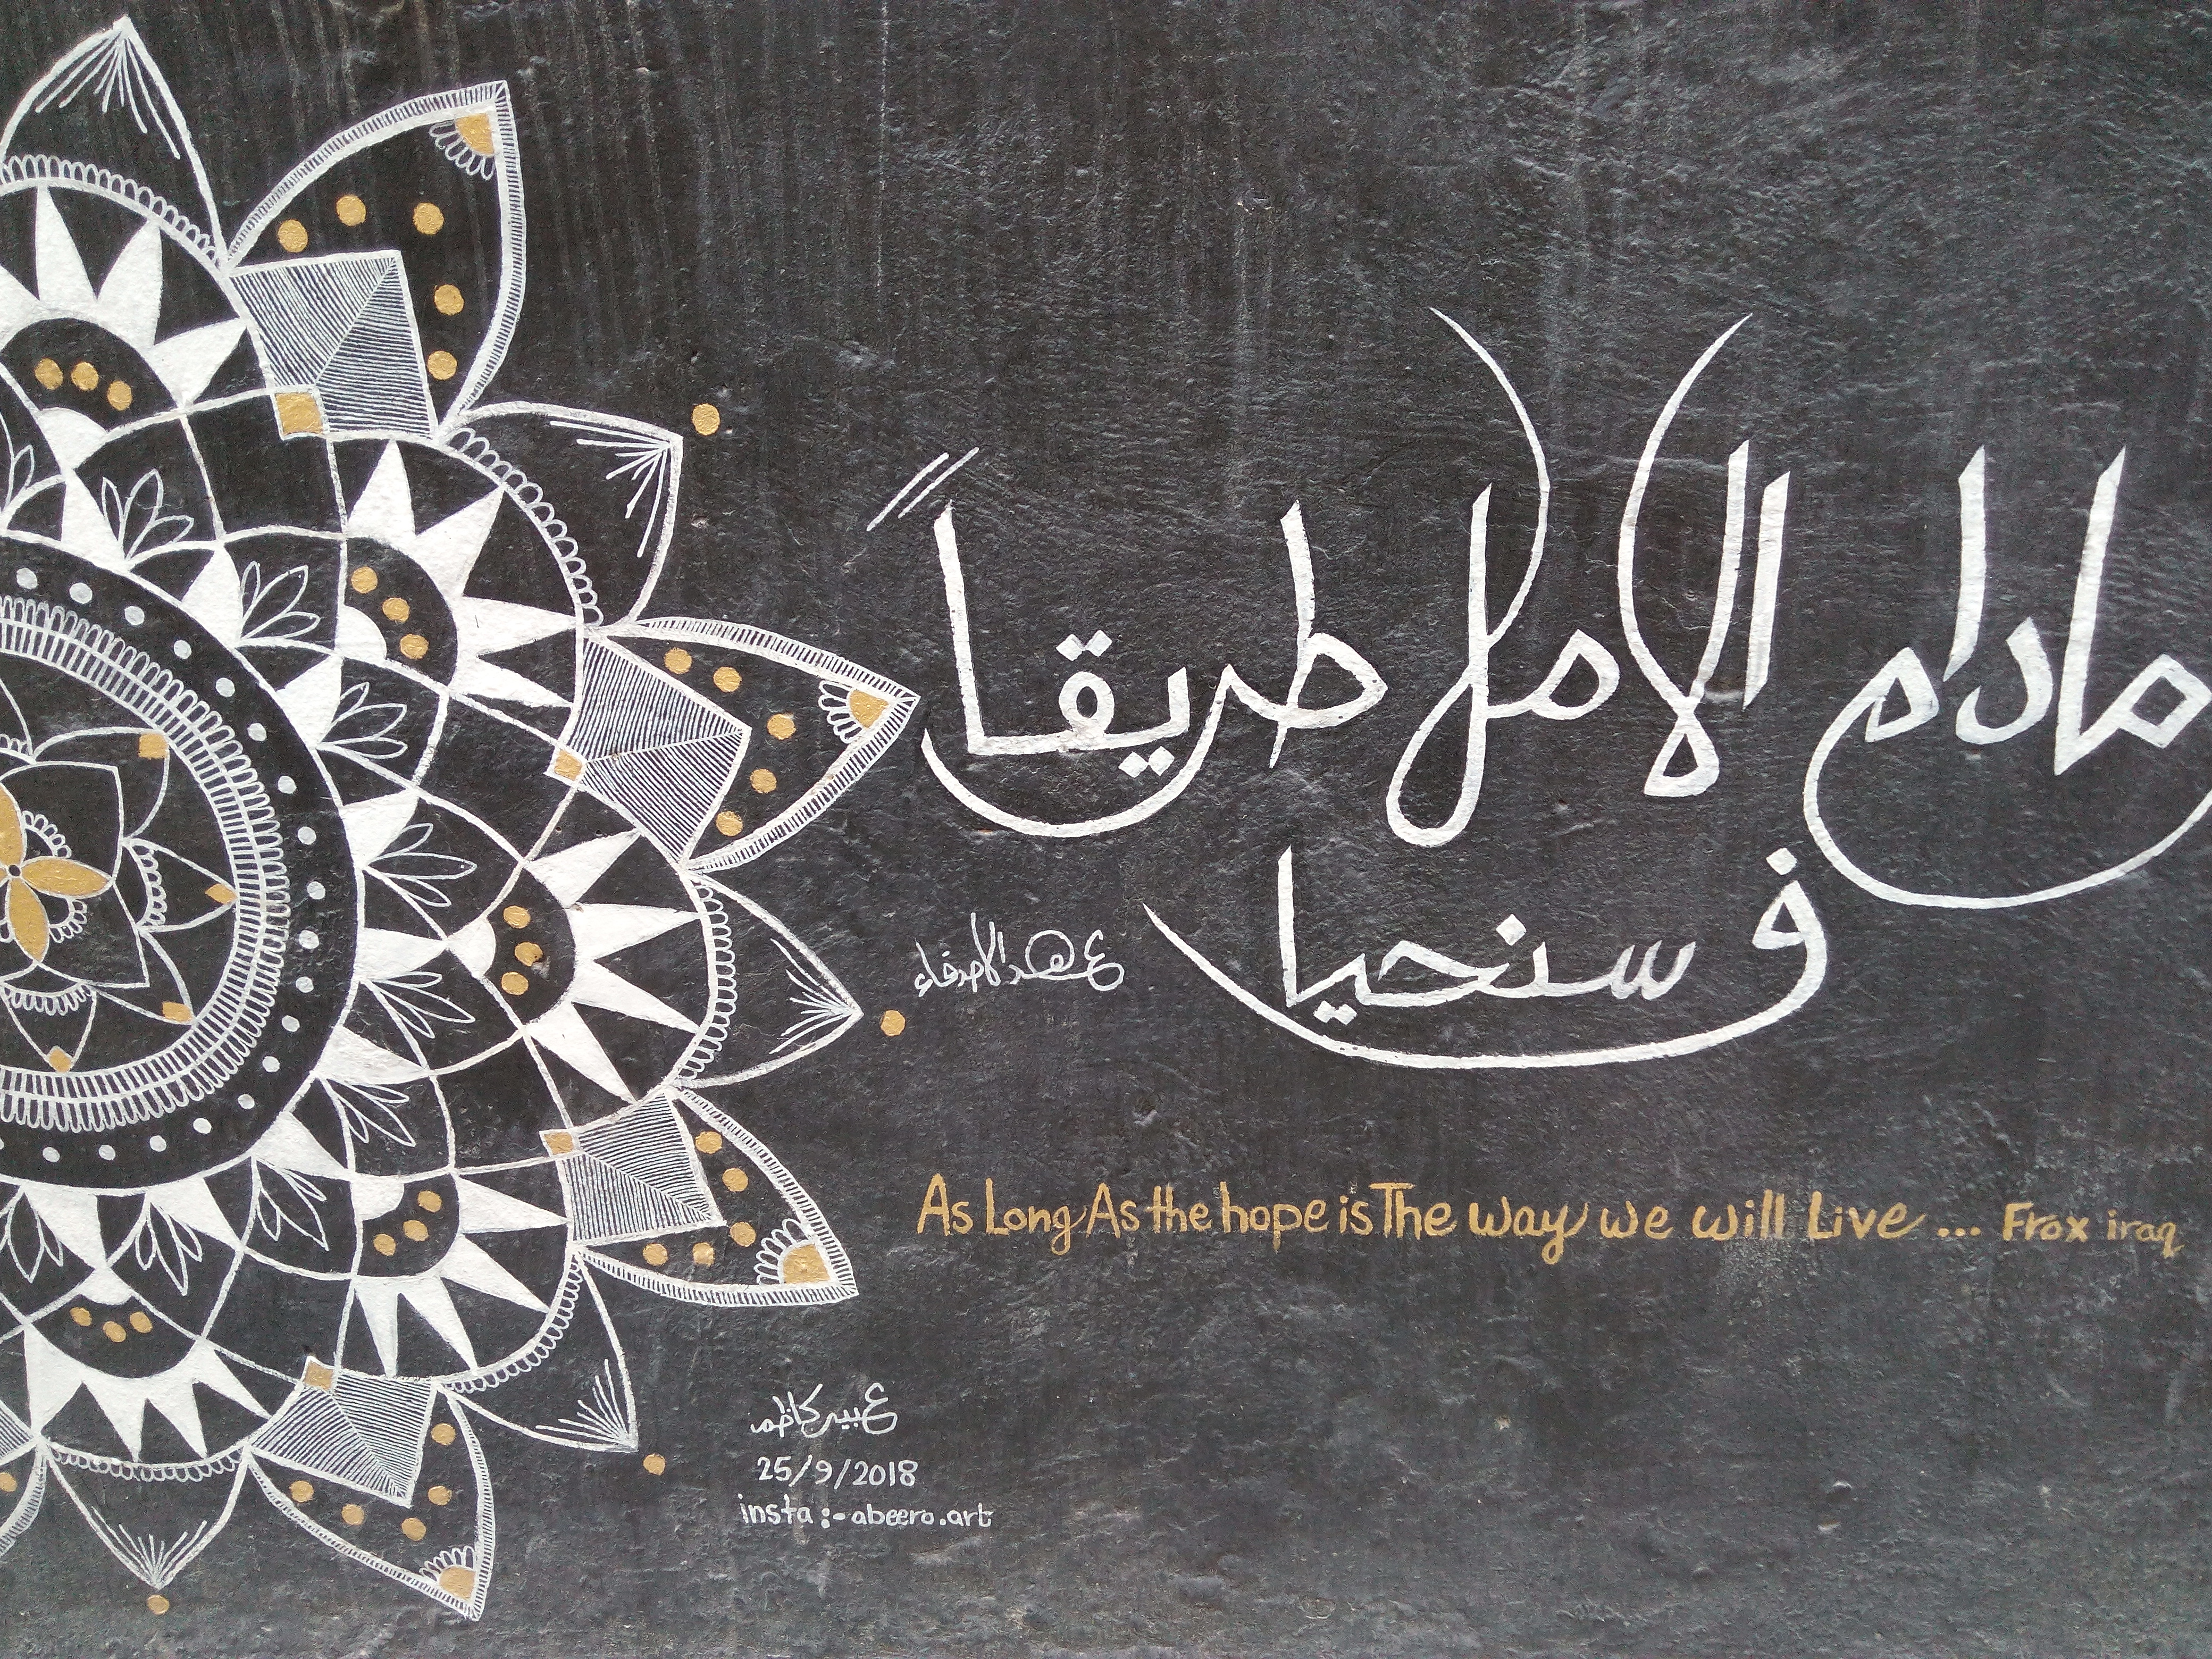 مادام الامل طريقاً
ف سنحيا
عهد الاصدقاء
As Long As the hope is The way we will Live ... Frox iraq
عبير كاظم
25/9/2018
insta :- abeero.art